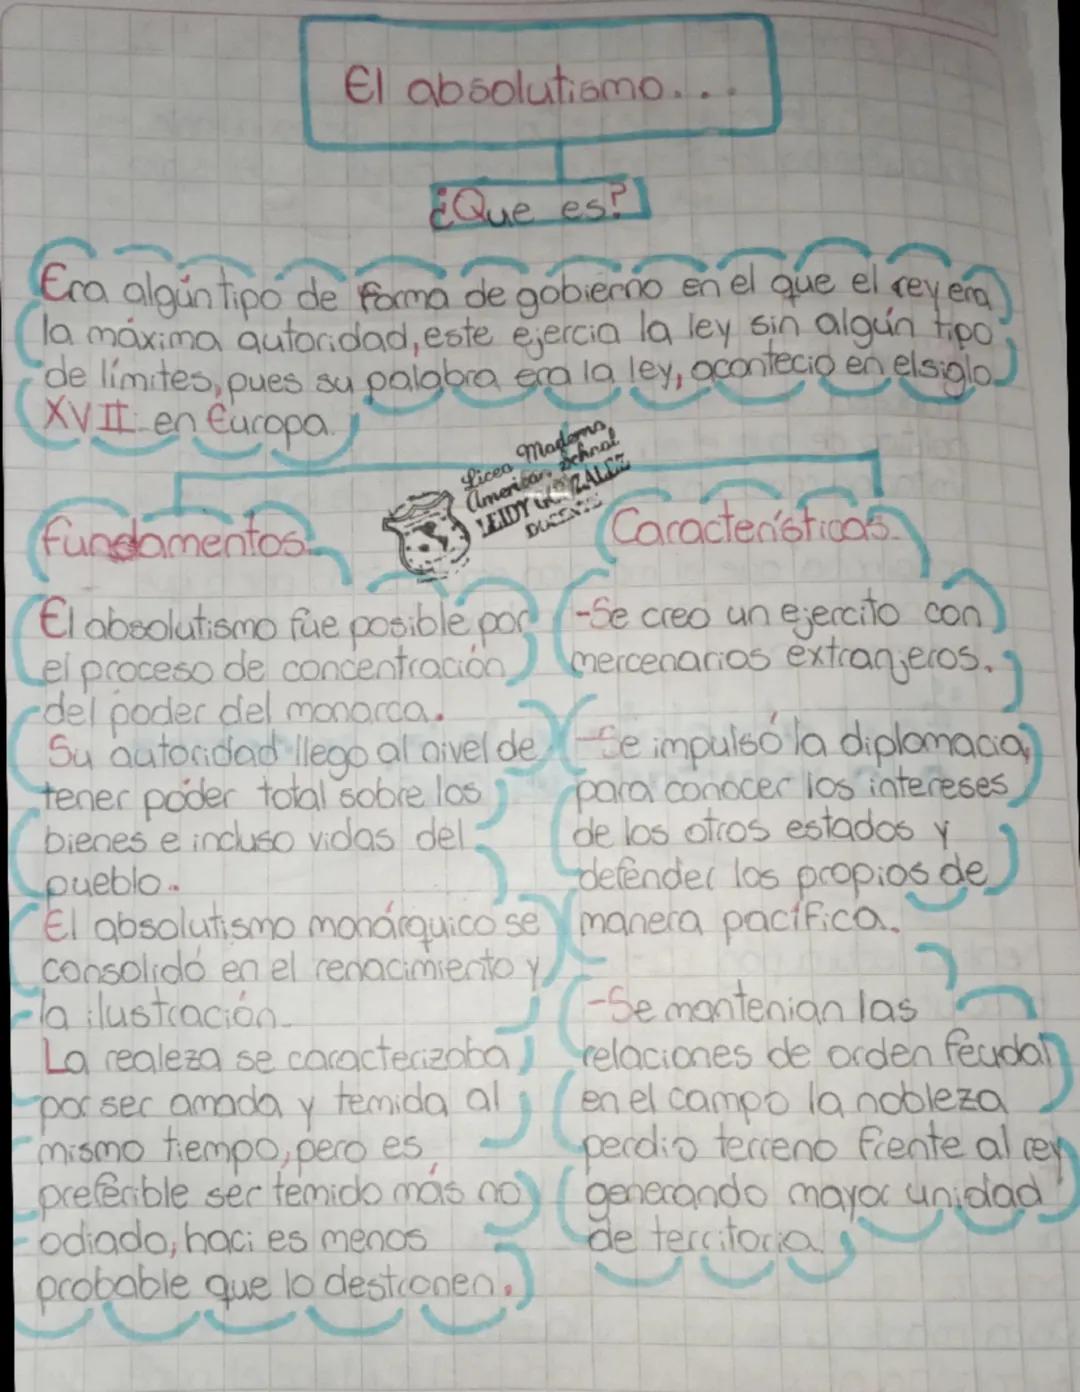 El absolutismo...
¿Que es?
Era algún tipo de forma de gobierno en el que el rey era
la máxima autoridad, este ejercia la ley sin algún tipo
de límites, pues su palabra era la ley, acontecio en el siglo
XVII en Europa.
Liceo Moderno
American School
LEIDY
DOCENTE
Fundamentos.
El absolutismo fue posible por
el proceso de concentración
del poder del monarca.
Su autoridad llego al nivel de
tener poder total sobre los
bienes e incluso vidas del
pueblo.
El absolutismo monárquico se
consolidó en el renacimiento y
la ilustración.
La realeza se caracterizaba
por ser amada y temida al
mismo tiempo, pero es
preferible ser temido más no
odiado, haci es menos
probable que lo destronen.
Características.
-Se creo un ejercito con
mercenarios extranjeros.
-Se impulsó la diplomacia,
para conocer los intereses
de los otros estados y
defender los propios de
manera pacífica.
-Se mantenian las
relaciones de orden feudal
en el campo la nobleza
perdio terreno frente al rey
generando mayor unidad
de territorio.